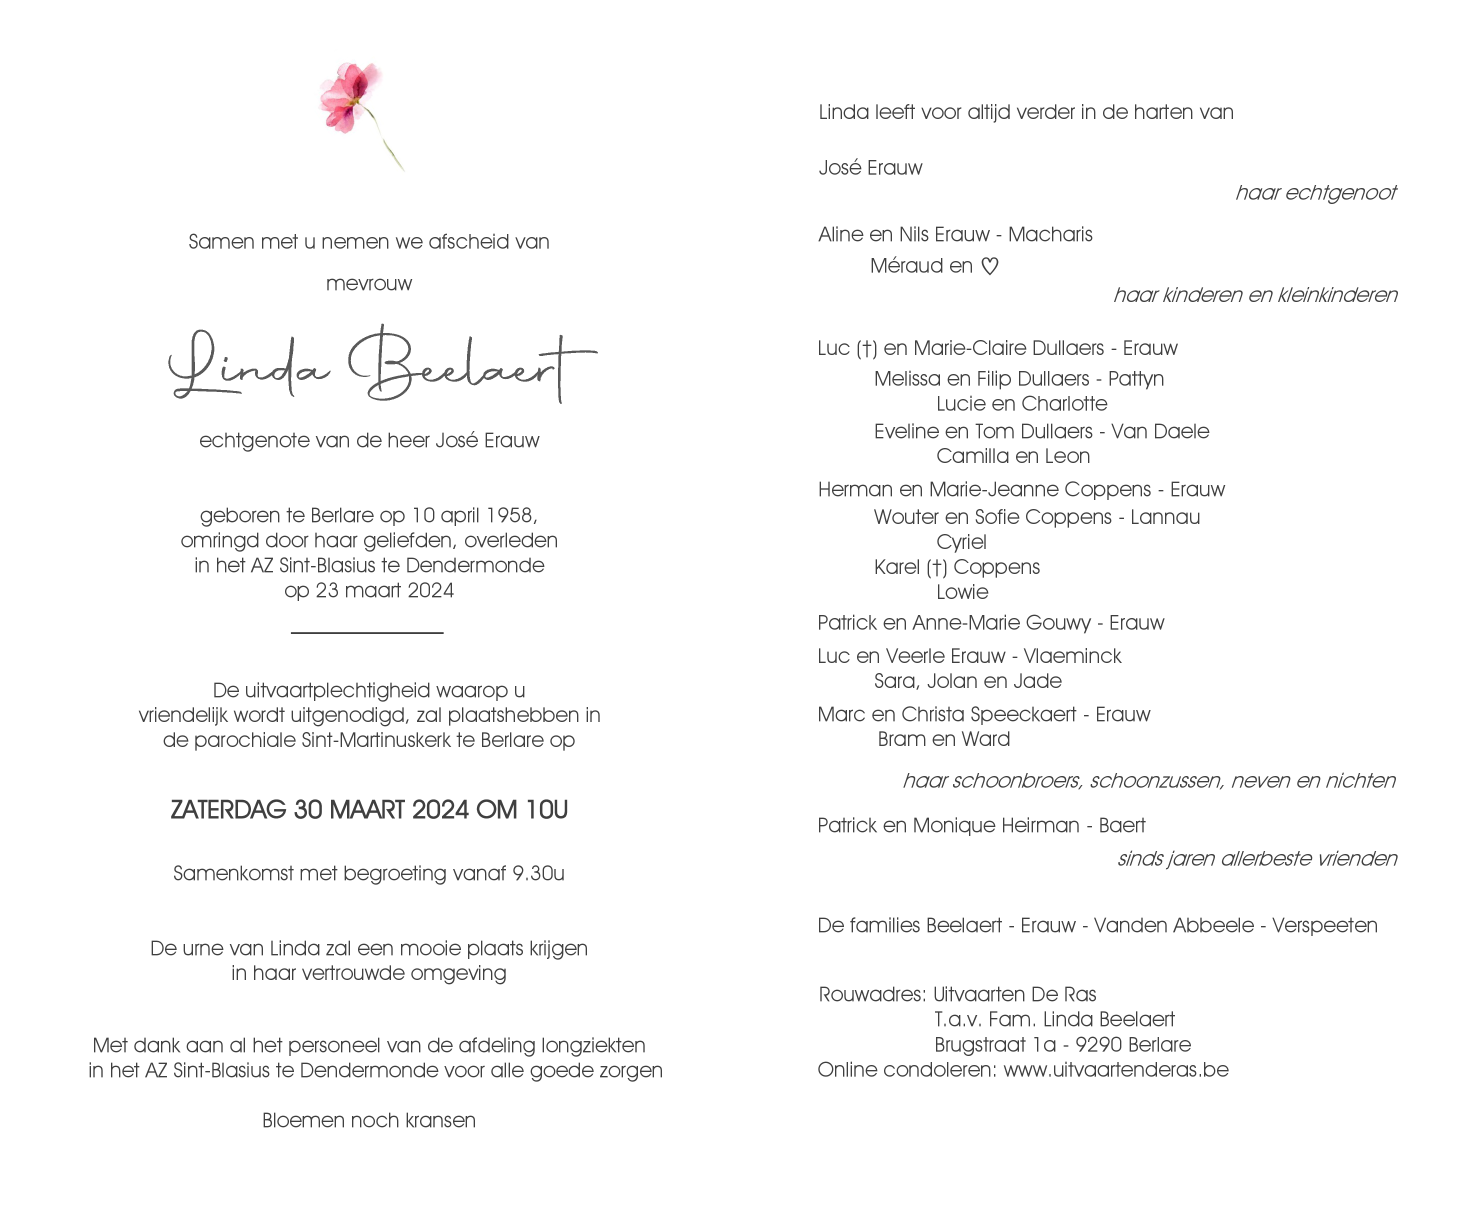 Samen met u nemen we afscheid van
mevrouw
Linda Beelaert
echtgenote van de heer José Erauw
geboren te Berlare op 10 april 1958,
omringd door haar geliefden, overleden
in het AZ Sint-Blasius te Dendermonde
op 23 maart 2024
De uitvaartplechtigheid waarop u
vriendelijk wordt uitgenodigd, zal plaatshebben in
de parochiale Sint-Martinuskerk te Berlare op
ZATERDAG 30 MAART 2024 OM 10U
Samenkomst met begroeting vanaf 9.30u
De urne van Linda zal een mooie plaats krijgen
in haar vertrouwde omgeving
Met dank aan al het personeel van de afdeling longziekten
in het AZ Sint-Blasius te Dendermonde voor alle goede zorgen
Bloemen noch kransen
Linda leeft voor altijd verder in de harten van
José Erauw
haar echtgenoot
Aline en Nils Erauw - Macharis
Méraud en ♡
haar kinderen en kleinkinderen
Luc (†) en Marie-Claire Dullaers - Erauw
Melissa en Filip Dullaers - Pattyn
Lucie en Charlotte
Eveline en Tom Dullaers - Van Daele
Camilla en Leon
Herman en Marie-Jeanne Coppens - Erauw
Wouter en Sofie Coppens - Lannau
Cyriel
Karel (†) Coppens
Lowie
Patrick en Anne-Marie Gouwy - Erauw
Luc en Veerle Erauw - Vlaeminck
Sara, Jolan en Jade
Marc en Christa Speeckaert - Erauw
Bram en Ward
haar schoonbroers, schoonzussen, neven en nichten
Patrick en Monique Heirman - Baert
sinds jaren allerbeste vrienden
De families Beelaert - Erauw - Vanden Abbeele - Verspeeten
Rouwadres: Uitvaarten De Ras
T.a.v. Fam. Linda Beelaert
Brugstraat 1a - 9290 Berlare
Online condoleren: www.uitvaartenderas.be